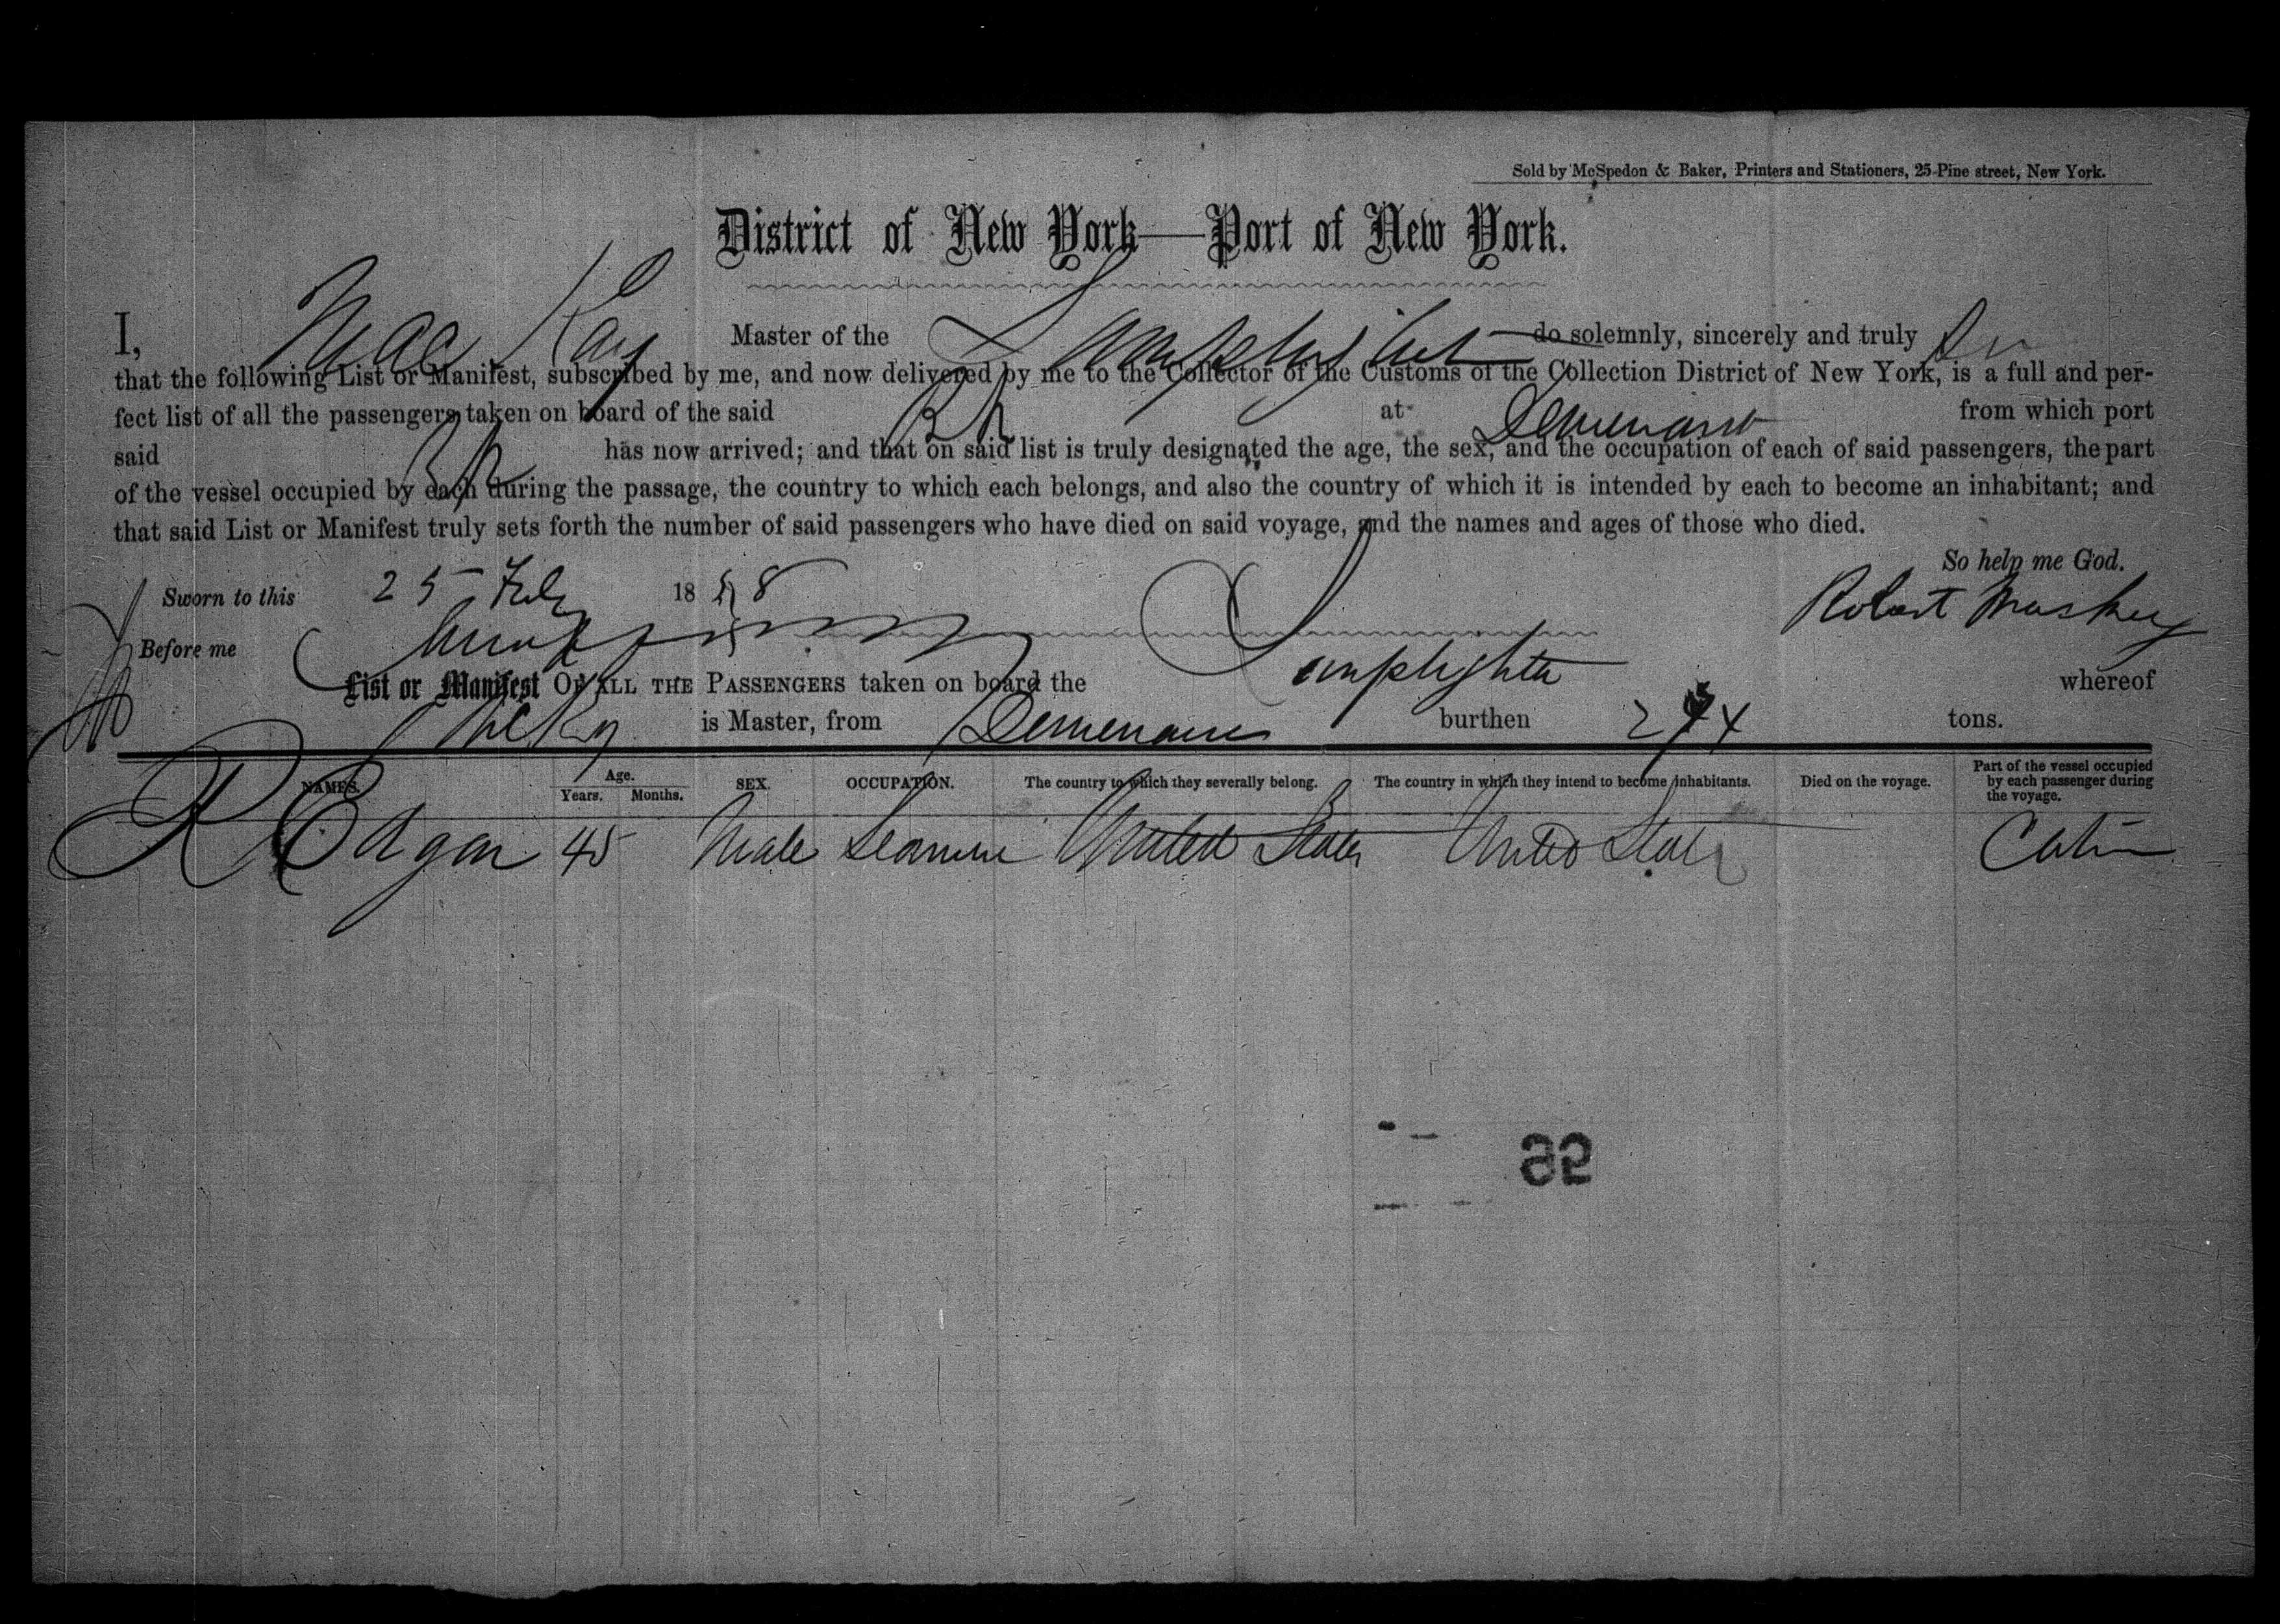 Sold by McSpedon & Baker, Printers and Stationers, 25 Pine street, New York.
District of New York—Port of New York.
I, Mac Kay Master of the Lamplighter do solemnly, sincerely and truly
that the following List or Manifest, subscribed by me, and now delivered by me to the Collector of the Customs of the Collection District of New York, is a full and per-
fect list of all the passengers taken on board of the said Bk at Demerara from which port
said Bk has now arrived; and that on said list is truly designated the age, the sex, and the occupation of each of said passengers, the part
of the vessel occupied by each during the passage, the country to which each belongs, and also the country of which it is intended by each to become an inhabitant; and
that said List or Manifest truly sets forth the number of said passengers who have died on said voyage, and the names and ages of those who died.
So help me God.
Sworn to this 25 Feby 1858 Robert
Before me
List or Manifest OF ALL THE PASSENGERS taken on board the Lamplighter whereof
McKy is Master, from Demerara burthen tons.
NAMES. Age. Years. Months. SEX. OCCUPATION. The country to which they severally belong. The country in which they intend to become inhabitants. Died on the voyage. Part of the vessel occupied by each passenger during the voyage.
R Edgar 45 Male United States United States Cabin
56